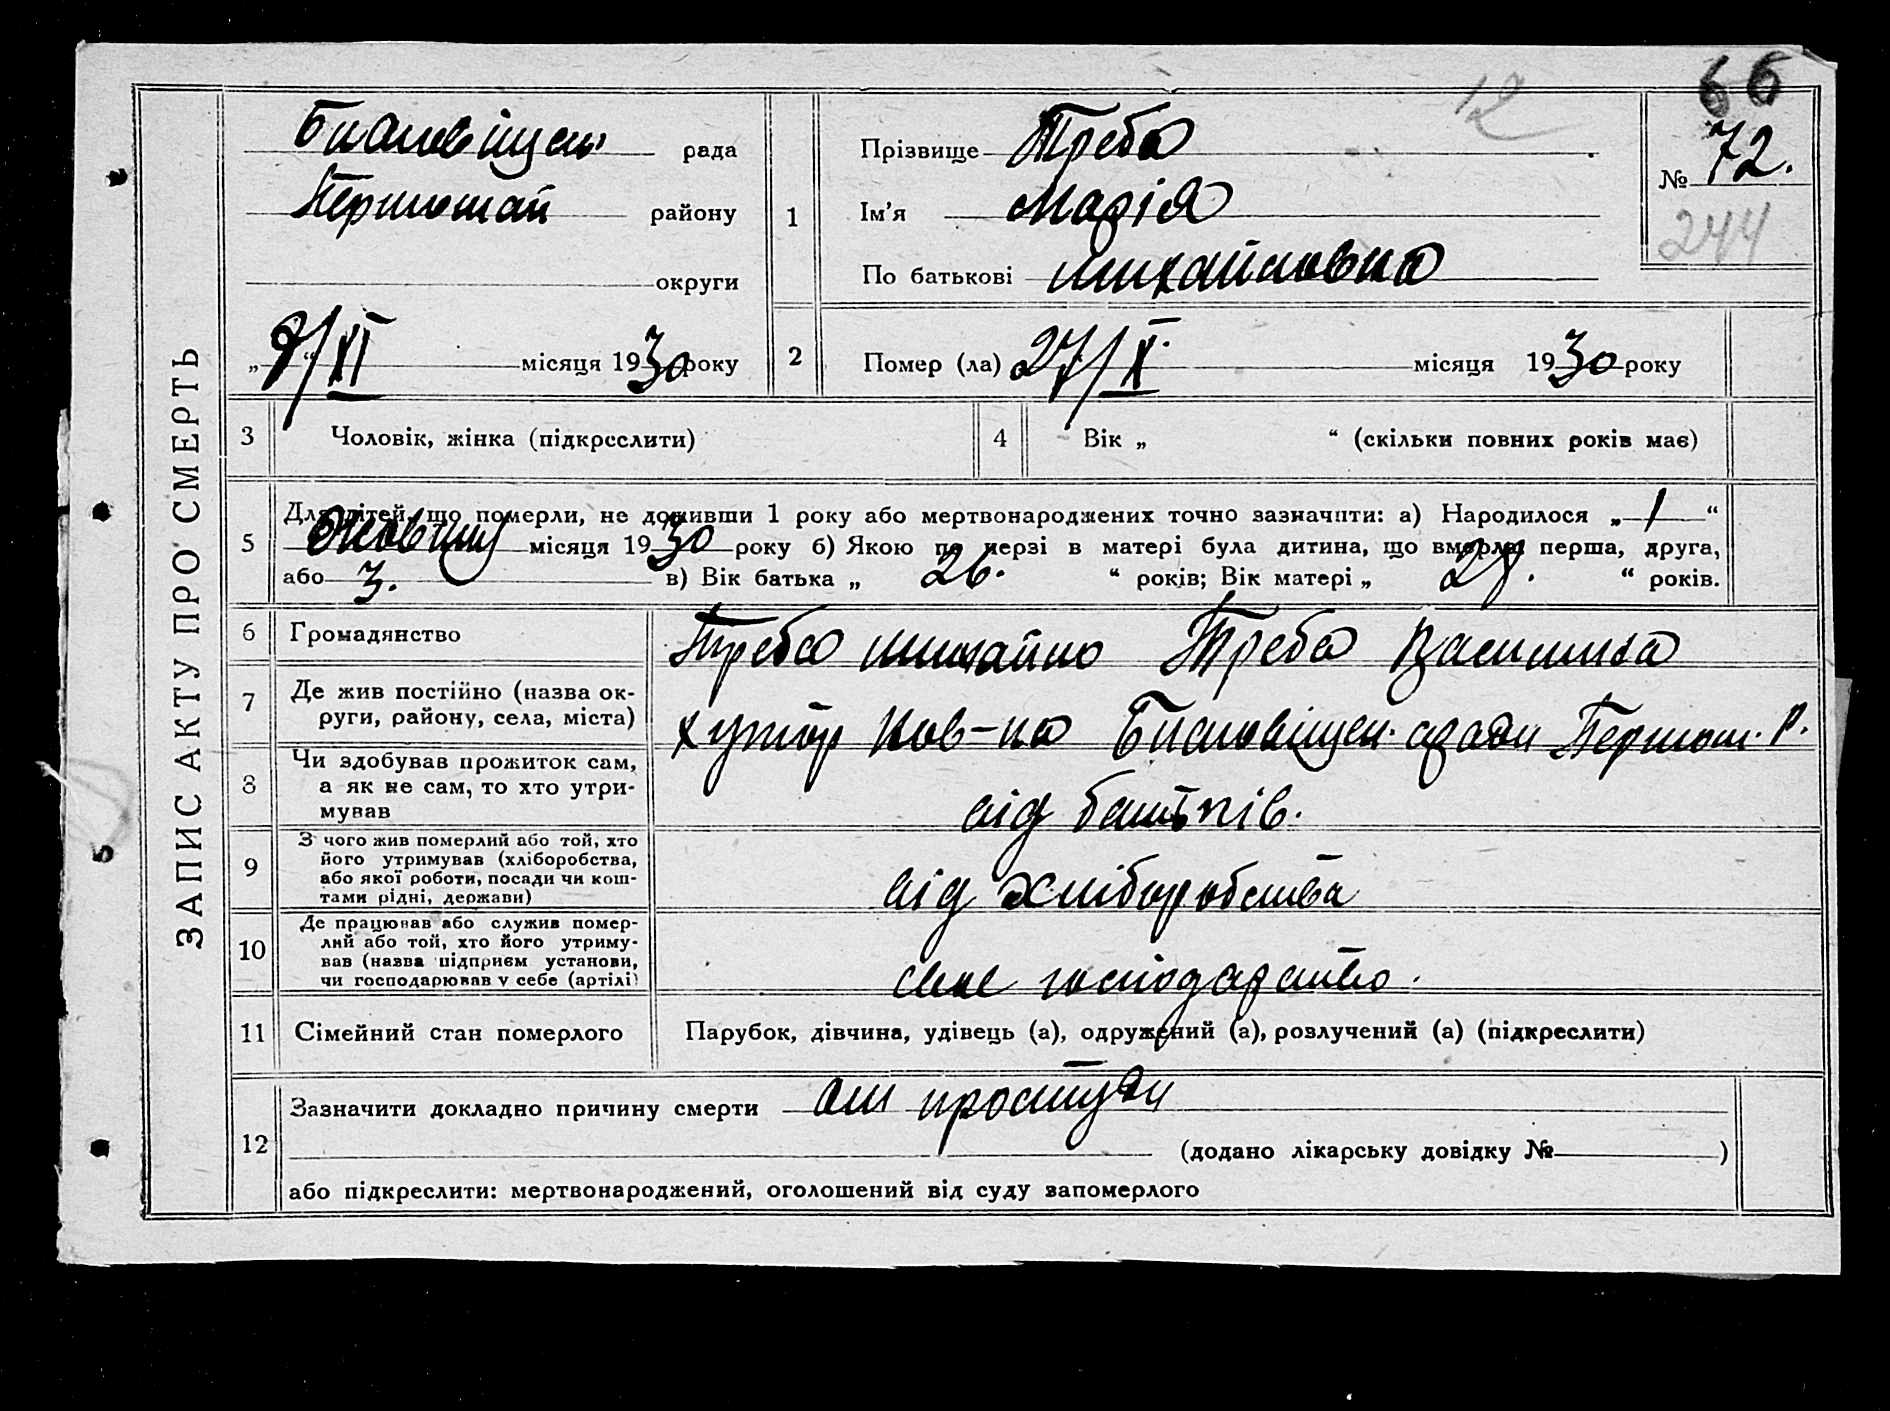 66
12
ЗАПИС АКТУ ПРО СМЕРТЬ
рада
Першомай району
округи
„ 9/XI “ місяця 1930 року
1
Прізвище Треба
Ім'я Марія
По батькові Михайловна
№ 72.
244
2
Помер (ла) 27/X місяця 1930 року
3 Чоловік, жінка (підкреслити)
4 Вік „ “ (скільки повних років має)
5 Для дітей, що померли, не доживши 1 року або мертвонароджених точно зазначити: а) Народилося „ 1 “
Жовтня місяця 1930 року б) Якою по черзі в матері була дитина, що вмерла: перша, друга,
або 3. в) Вік батька „ 26. “ років; Вік матері „ “ років.
6 Громадянство Треба Михайло Треба Василина
7 Де жив постійно (назва округи, району, села, міста) хутір ради Першом. Р.
8 Чи здобував прожиток сам, а як не сам, то хто утримував
від батьків.
9 З чого жив померлий або той, хто його утримував (хліборобства, або якої роботи, посади чи коштами рідні, держави)
від хліборобства
10 Де працював або служив померлий або той, хто його утримував (назва підприєм установи, чи господарював у себе (артілі)
сільське господарство.
11 Сімейний стан померлого Парубок, дівчина, удівець (а), одружений (а), розлучений (а) (підкреслити)
12 Зазначити докладно причину смерти от простуди
(додано лікарську довідку № )
або підкреслити: мертвонароджений, оголошений від суду запомерлого